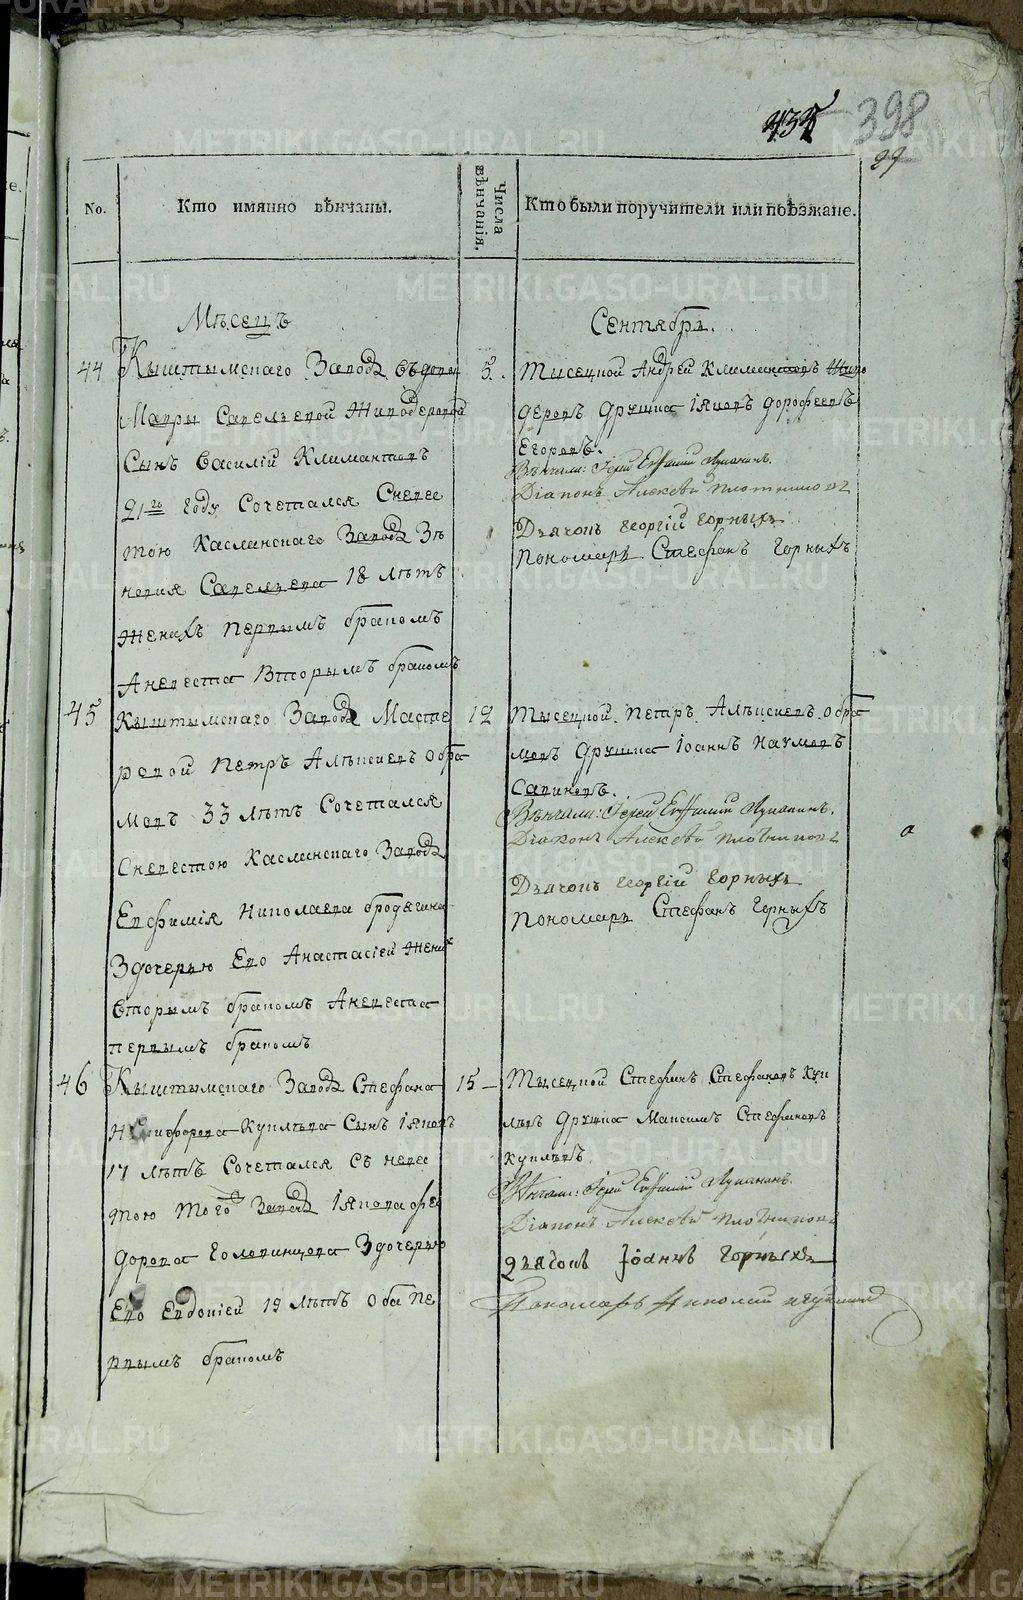 398
27
No.
Кто имянно вѣнчаны.
Числа вѣнчанія.
Кто были поручители или поѣзжане.
Мѣсецъ
Сентябрь.
44
Кыштымскаго Завода
Сынъ Василій Климантовъ
21го году Сочетался Сневес
тою Каслинскаго Завода Зѣ
новия Савельева 18 лѣтъ
Женихъ Первымъ бракомъ
Аневеста Вторымъ бракомъ
5.
Тисецкой Андрей Климантовъ Живо
деровъ Дружка Іяковъ Дорофеевъ
Егоровъ.
Вѣнчали: Іерей Евфимий
Діаконъ Алексѣй Плотниковъ
Дьячокъ Георгій Горныхъ
Пономарь Стефанъ Горныхъ
45
Кыштымскаго Завода Масте
ровой Петръ Алѣксиевъ Обра
мовъ 33 лѣтъ Сочетался
Сневестою Каслинскаго Завода
Евфимія Николаева
Здочерью Ево Анастасіей Жених
Вторымъ бракомъ Аневеста
первымъ бракомъ
12
Тысецкой Петръ Алѣксиевъ Обра
мовъ Дружка Іоаннъ Наумовъ
Савиновъ.
Вѣнчали: Іерей Евфимий
Діаконъ Алексѣй Плотниковъ
Дьячокъ Георгій Горныхъ
Пономарь Стефанъ Горныхъ
46
Кыштымскаго Завода Стефана
Никифорова Куплева Сынъ Іяковъ
17 лѣтъ Сочетался Съ невес
тою Того Завода Іякова Фе
дорова Головинцова Здочерью
Ево Евдокіей 19 лѣтъ Оба пе
рвымъ бракомъ
15
Тысецкой Стефанъ Стефановъ Куп
левъ Дружка Максимъ Стефановъ
Куплевъ
Вѣнчали: Іерей Евфимий
Діаконъ Алексѣй Плотниковъ
Дьячокъ Іоаннъ Горныхъ
Пономарь Николай
METRIKI.GASO-URAL.RU